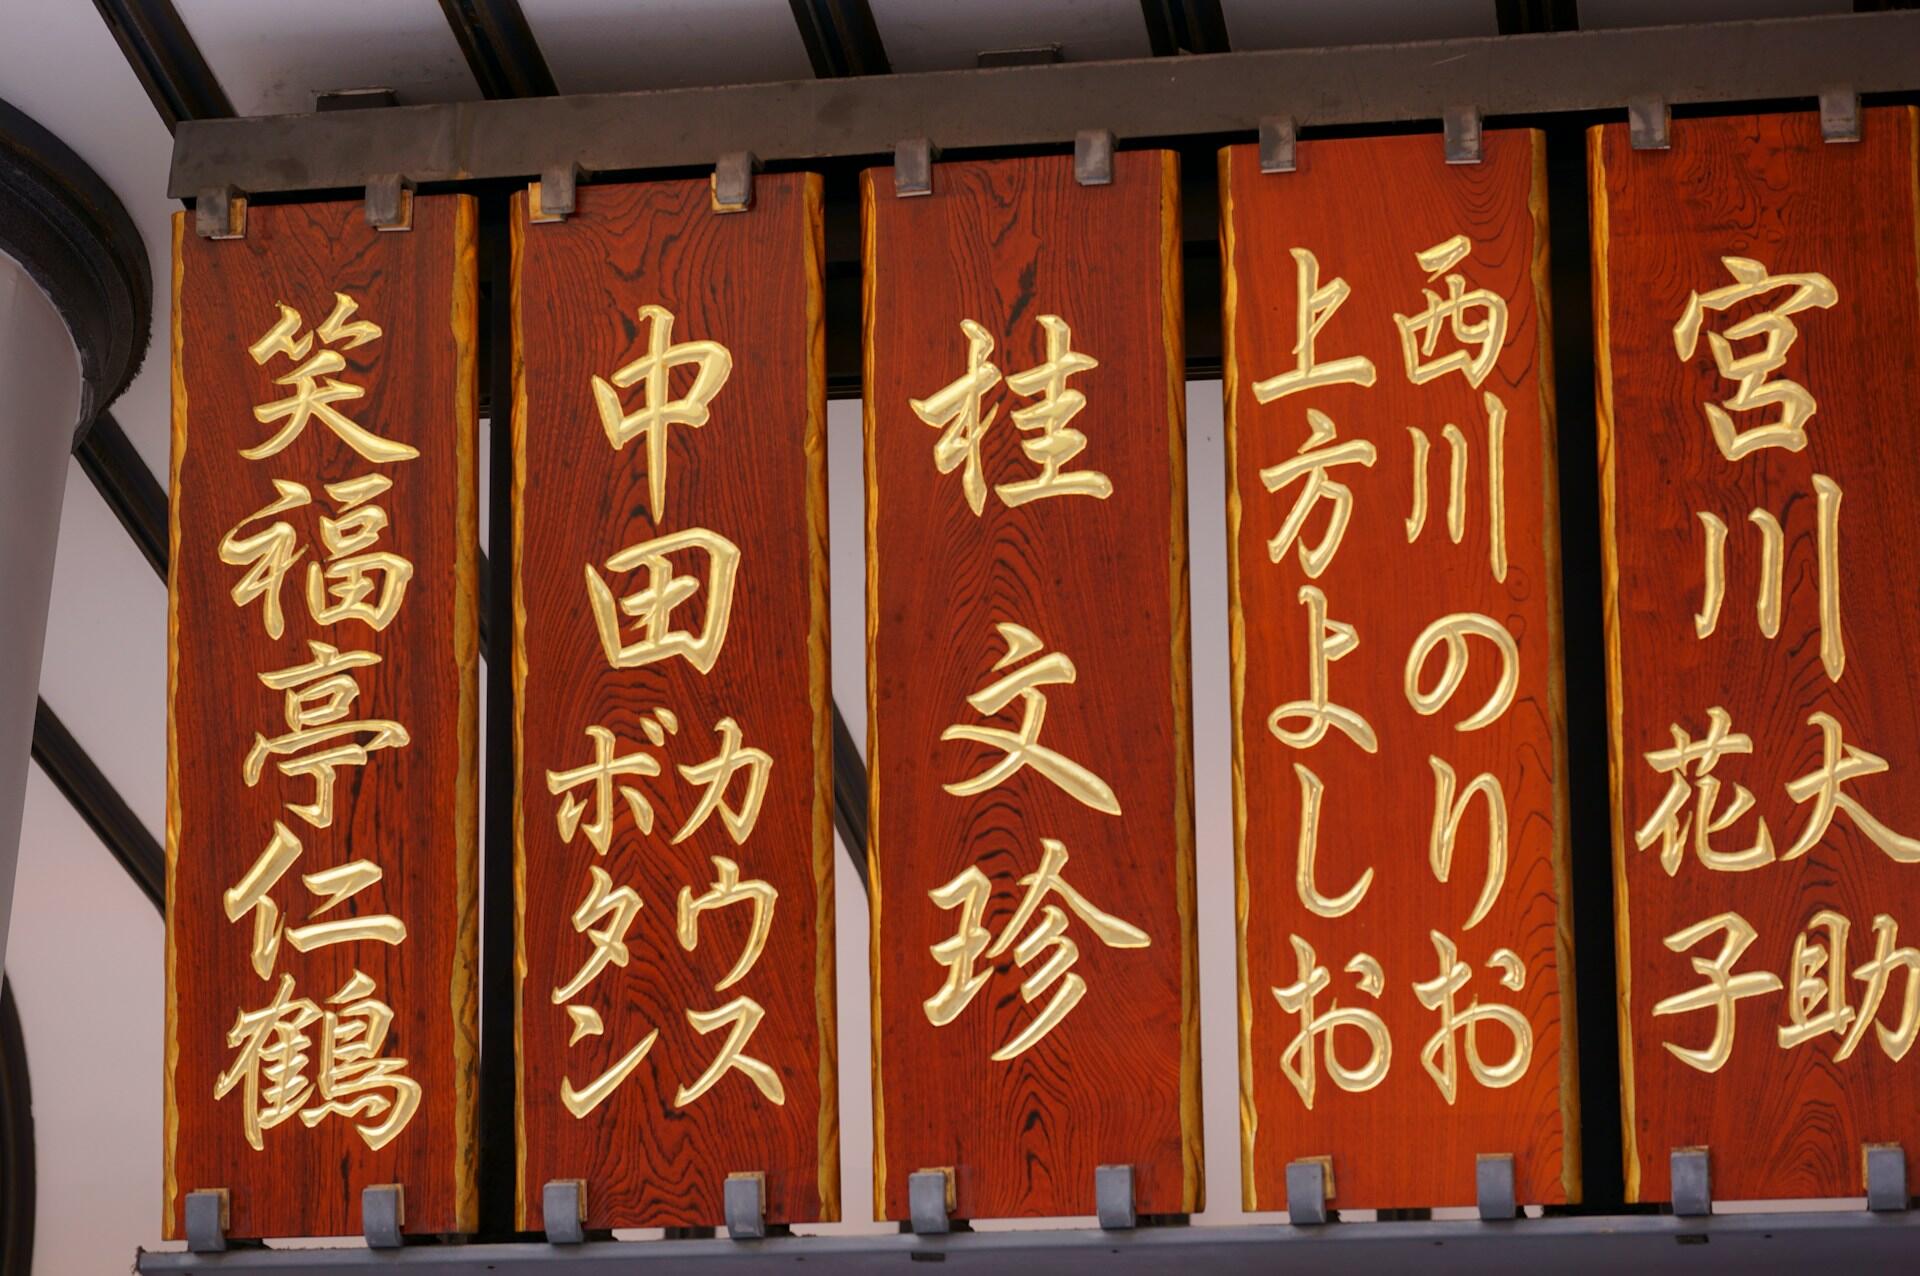 宮川
大助
花子
西川のりお
上方よしお
桂文珍
中田
カウス
ボタン
笑福亭仁鶴